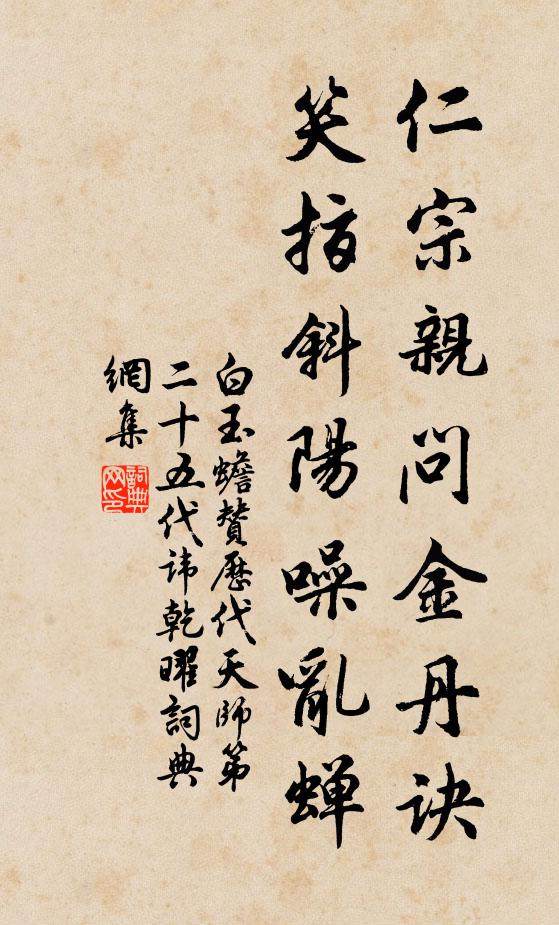 仁宗親問金丹訣
笑指斜陽噪亂蝉
白玉蟾贊歷代天師第
二十五代諱乾曜詞典
網集
詞典網印